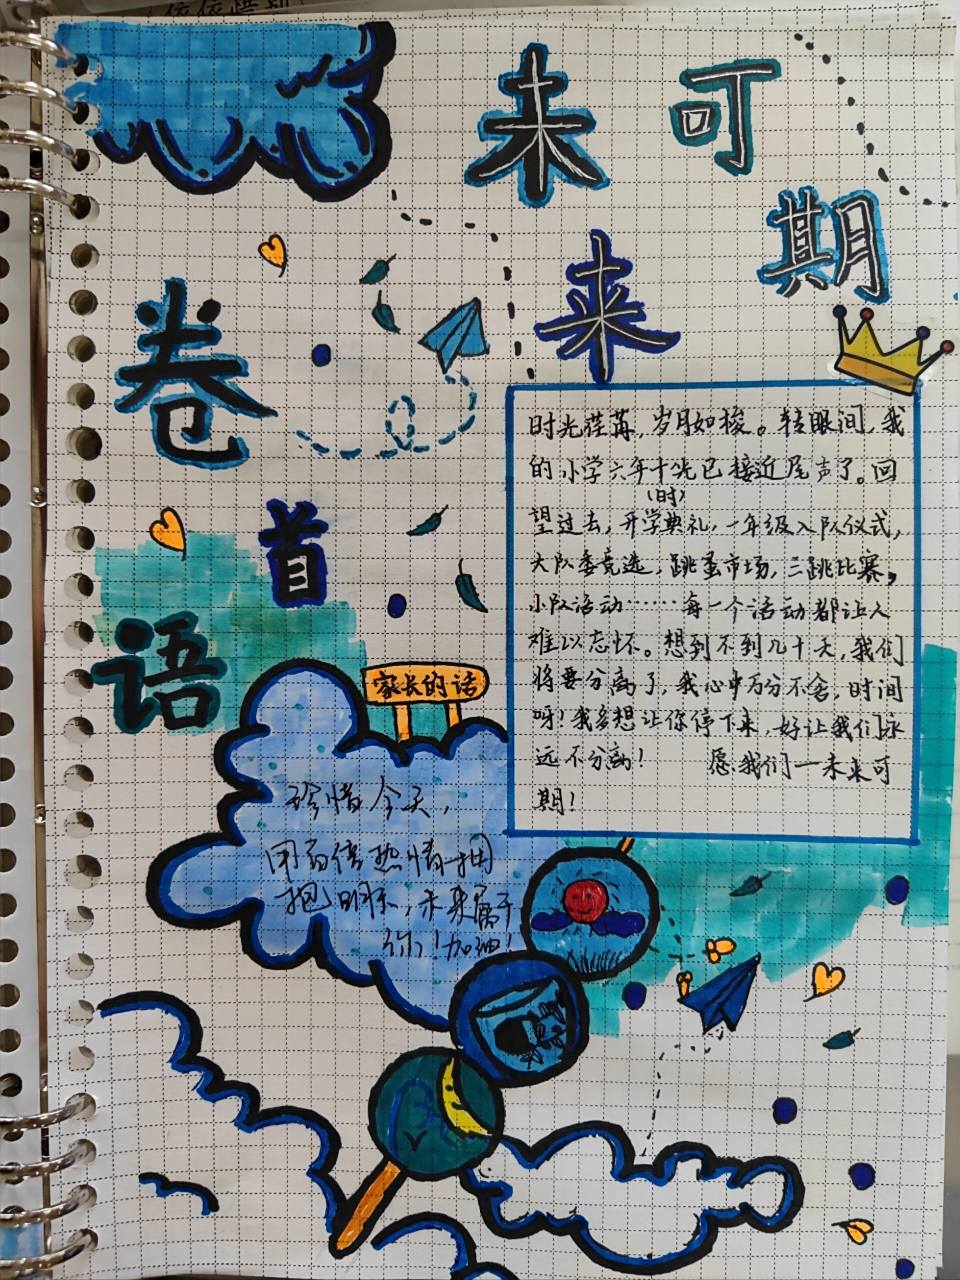 未来可期
卷首语
时光荏苒,岁月如梭。转眼间,我
的小学六年时光已接近尾声了。回
(时)
望过去,开学典礼,一年级入队仪式,
大队委竞选,跳蚤市场,三跳比赛,
小队活动……每一个活动都让人
难以忘怀。想到不到几十天,我们
将要分离了,我心中万分不舍,时间
呀!我多想让你停下来,好让我们永
远不分离! 愿我们一未来可
期!
家长的话
珍惜今天,
用百倍热情拥
抱明天,未来属于
你!加油!